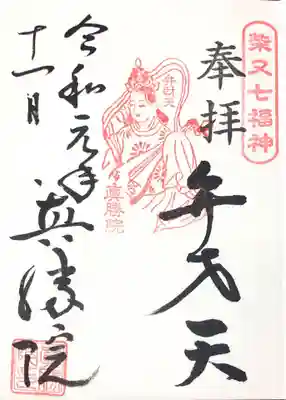 柴又七福神
奉拝
弁才天
弁財天
眞勝院
令和元年
十一月
真勝院